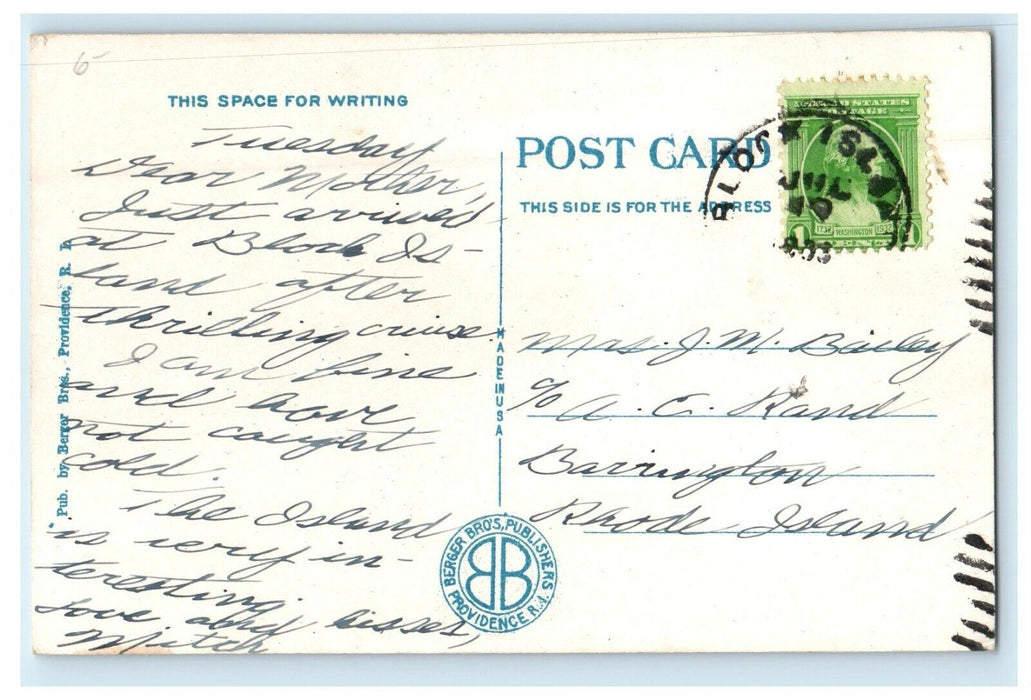 6
THIS SPACE FOR WRITING
Tuesday
Dear Mother,
Just arrived
at Block Is-
land after
thrilling cruise.
I am fine
and have
not caught
cold.
The Island
is very in-
teresting.
Love and kisses,
Mitch
Pub. by Berger Bros., Providence, R. I.
MADE IN USA
BERGER BRO'S, PUBLISHERS
BB
PROVIDENCE R.I.
POST CARD
THIS SIDE IS FOR THE ADDRESS
UNITED STATES
POSTAGE
1732 WASHINGTON 1932
1 CENT 1
BLOCK ISLAND
JUL
Mrs. J. M. Bailey
c/o A. E. Rand
Barrington
Rhode Island